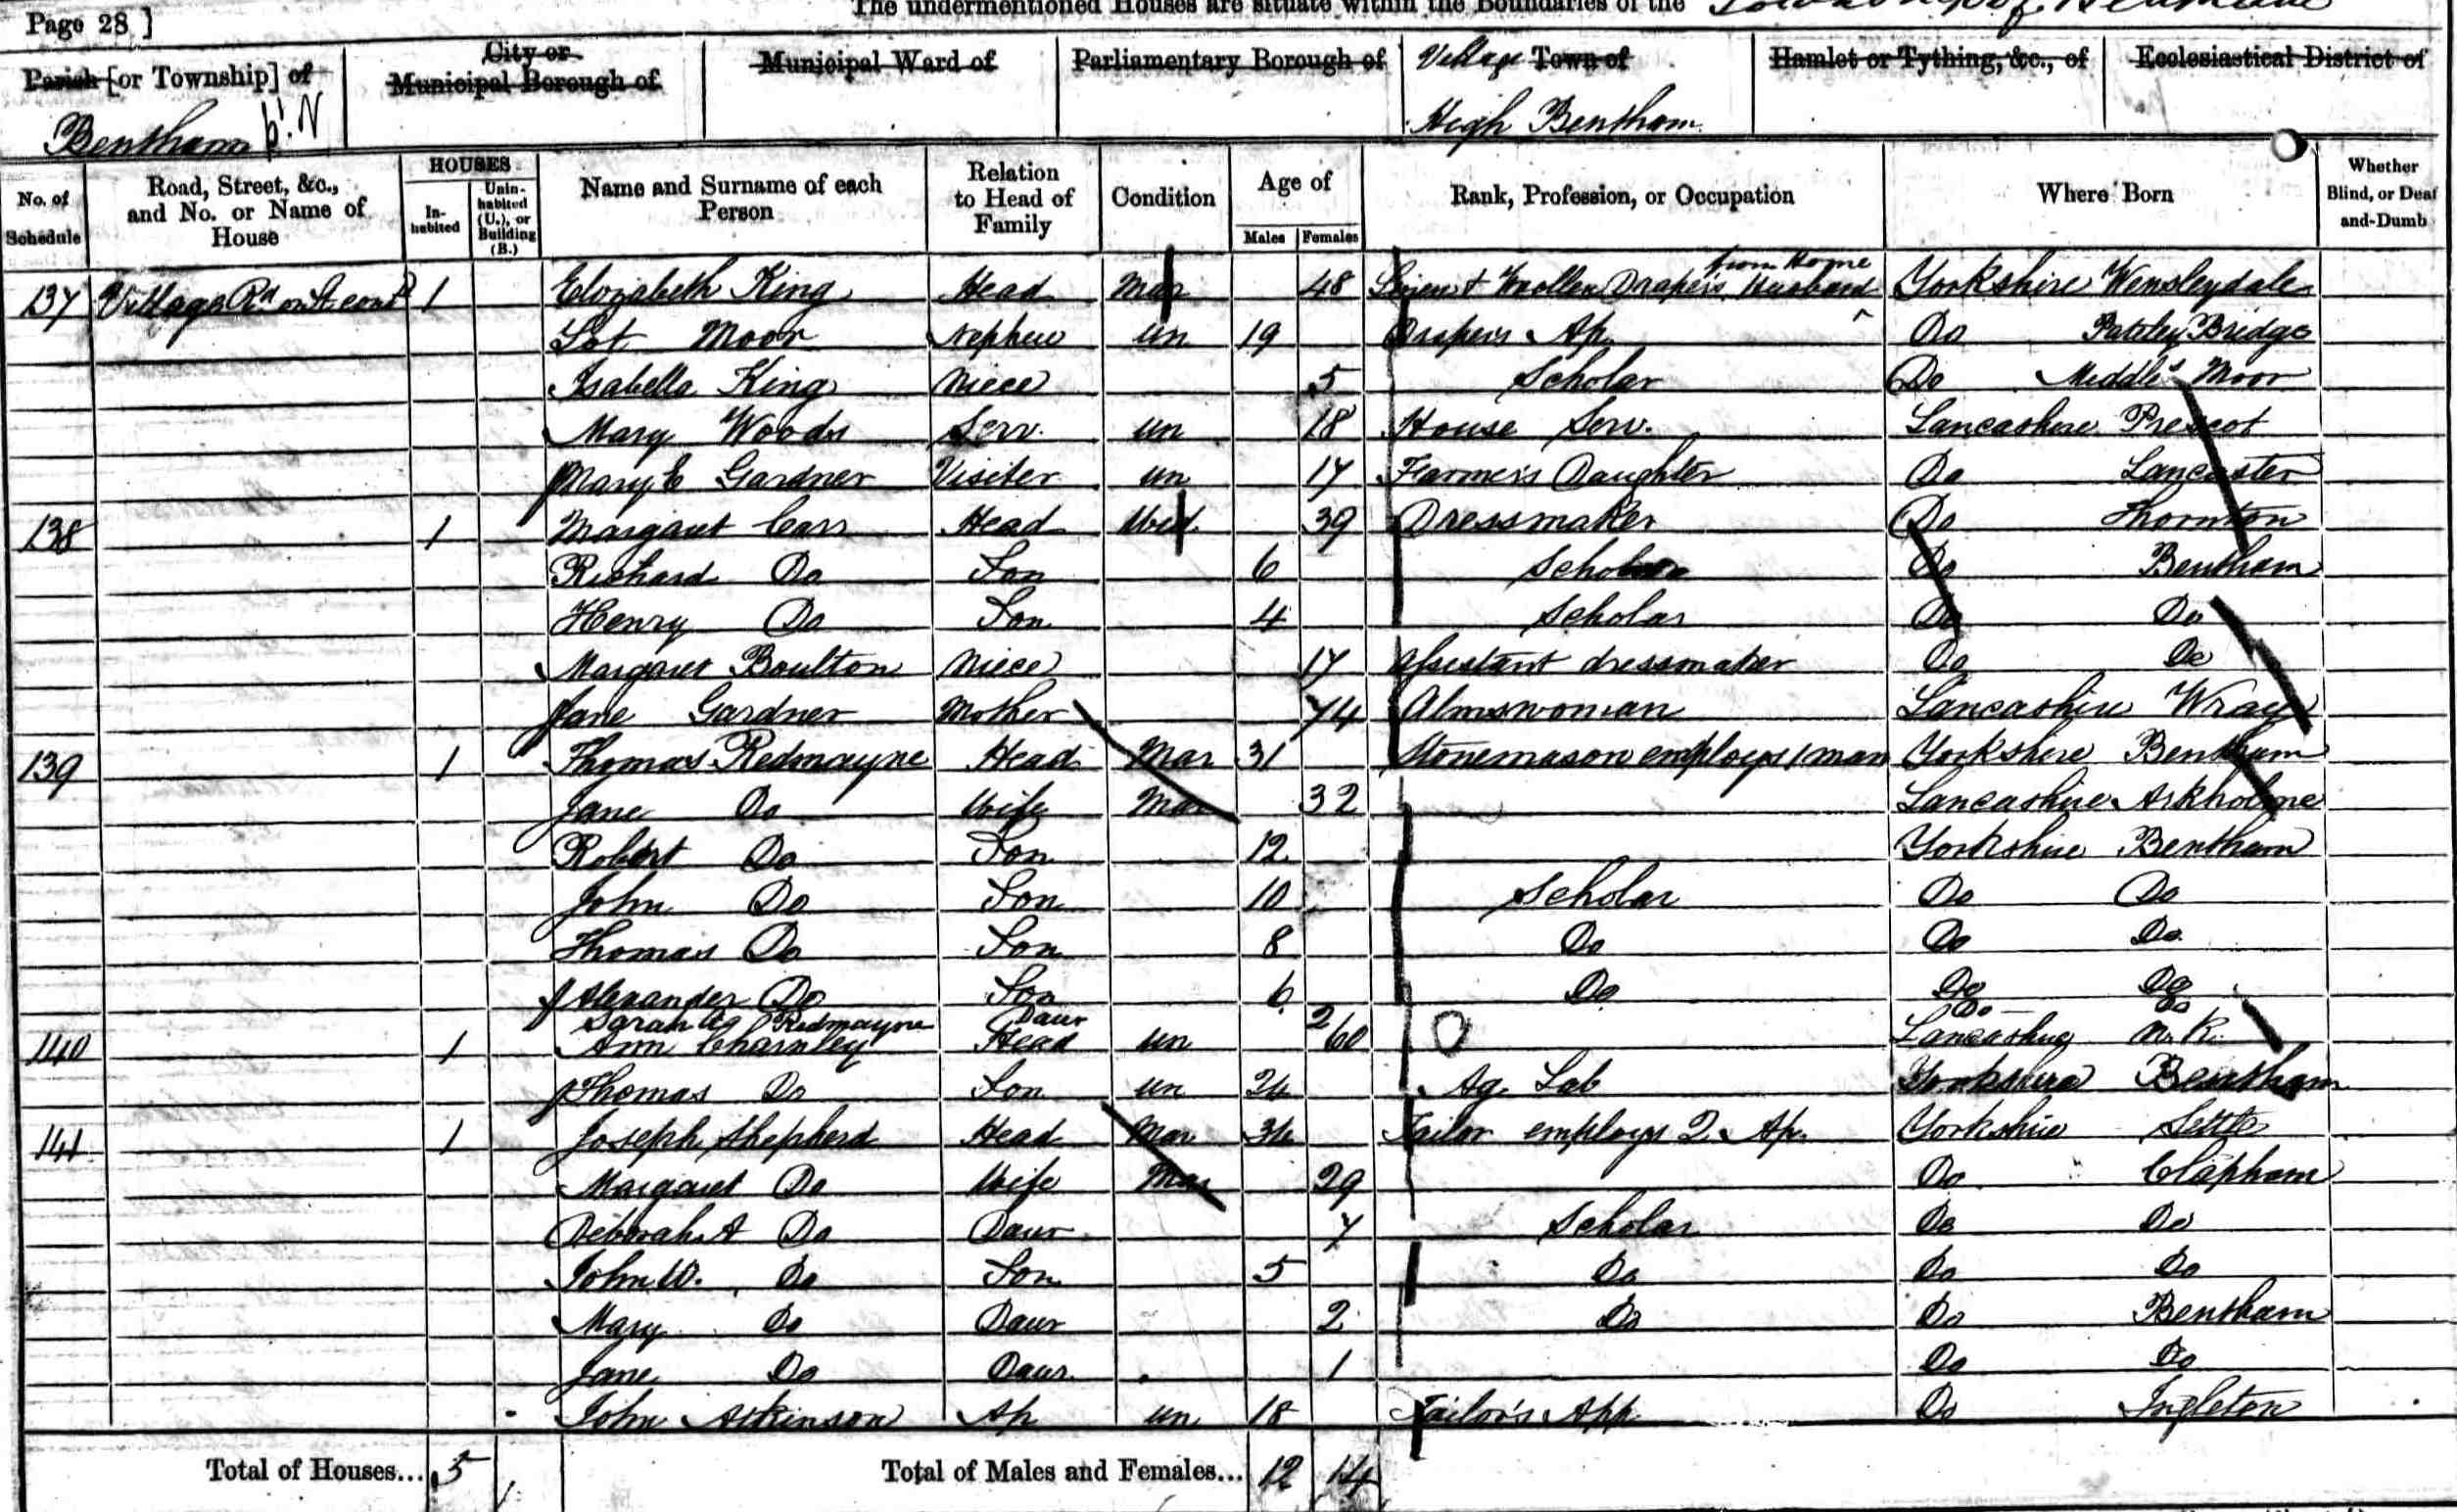 Page 28 ]
The undermentioned Houses are situate within the Boundaries of the Township of Bentham
Parish [or Township] of
City or Municipal Borough of
Municipal Ward of
Parliamentary Borough of
Village Town of
Hamlet or Tything, &c., of
Ecclesiastical District of
Bentham
High Bentham
No. of Schedule
Road, Street, &c., and No. or Name of House
HOUSES
Inhabited
Uninhabited (U.), or Building (B.)
Name and Surname of each Person
Relation to Head of Family
Condition
Age of
Males
Females
Rank, Profession, or Occupation
Where Born
Whether Blind, or Deaf and-Dumb
from Home
137 Village Rd on 1 Elizabeth King Head Mar 48 Linen & Woollen Draper's Husband Yorkshire Wensleydale
Lot Moor Nephew un 19 Drapers Ap. Do Pateley Bridge
Isabella King Niece 5 Scholar Do Middles Moor
Mary Woods Serv. un 18 House Serv. Lancashire Prescot
Mary E Gardner Visiter un 17 Farmer's Daughter Do Lancaster
138 1 Margaret Carr Head Wid. 39 Dressmaker Do Thornton
Richard Do Son 6 Scholar Do Bentham
Henry Do Son 4 Scholar Do Do
Margaret Boulton Niece 17 Assistant dressmaker Do Do
Jane Gardner Mother 74 Almswoman Lancashire Wray
139 1 Thomas Redmayne Head Mar 31 Stonemason employs 1 man Yorkshire Bentham
Jane Do Wife Mar 32 Lancashire Arkholme
Robert Do Son 12 Yorkshire Bentham
John Do Son 10 Scholar Do Do
Thomas Do Son 8 Do Do Do
Alexander Do Son 6 Do Do Do
Sarah Redmayne Daur 2 Do Do
140 1 Ann Charnley Head un 60 Lancashire N. K.
Thomas Do Son un 24 Ag. Lab Yorkshire Bentham
141 1 Joseph Shepherd Head Mar 34 Tailor employs 2 Ap. Yorkshire Settle
Margaret Do Wife Mar 29 Do Clapham
Deborah A Do Daur 7 Scholar Do Do
John W. Do Son 5 Do Do Do
Mary Do Daur 2 Do Do Bentham
Jane Do Daur. 1 Do Do
John Atkinson Ap un 18 Tailor's App Do Ingleton
Total of Houses... 5
Total of Males and Females... 12 14